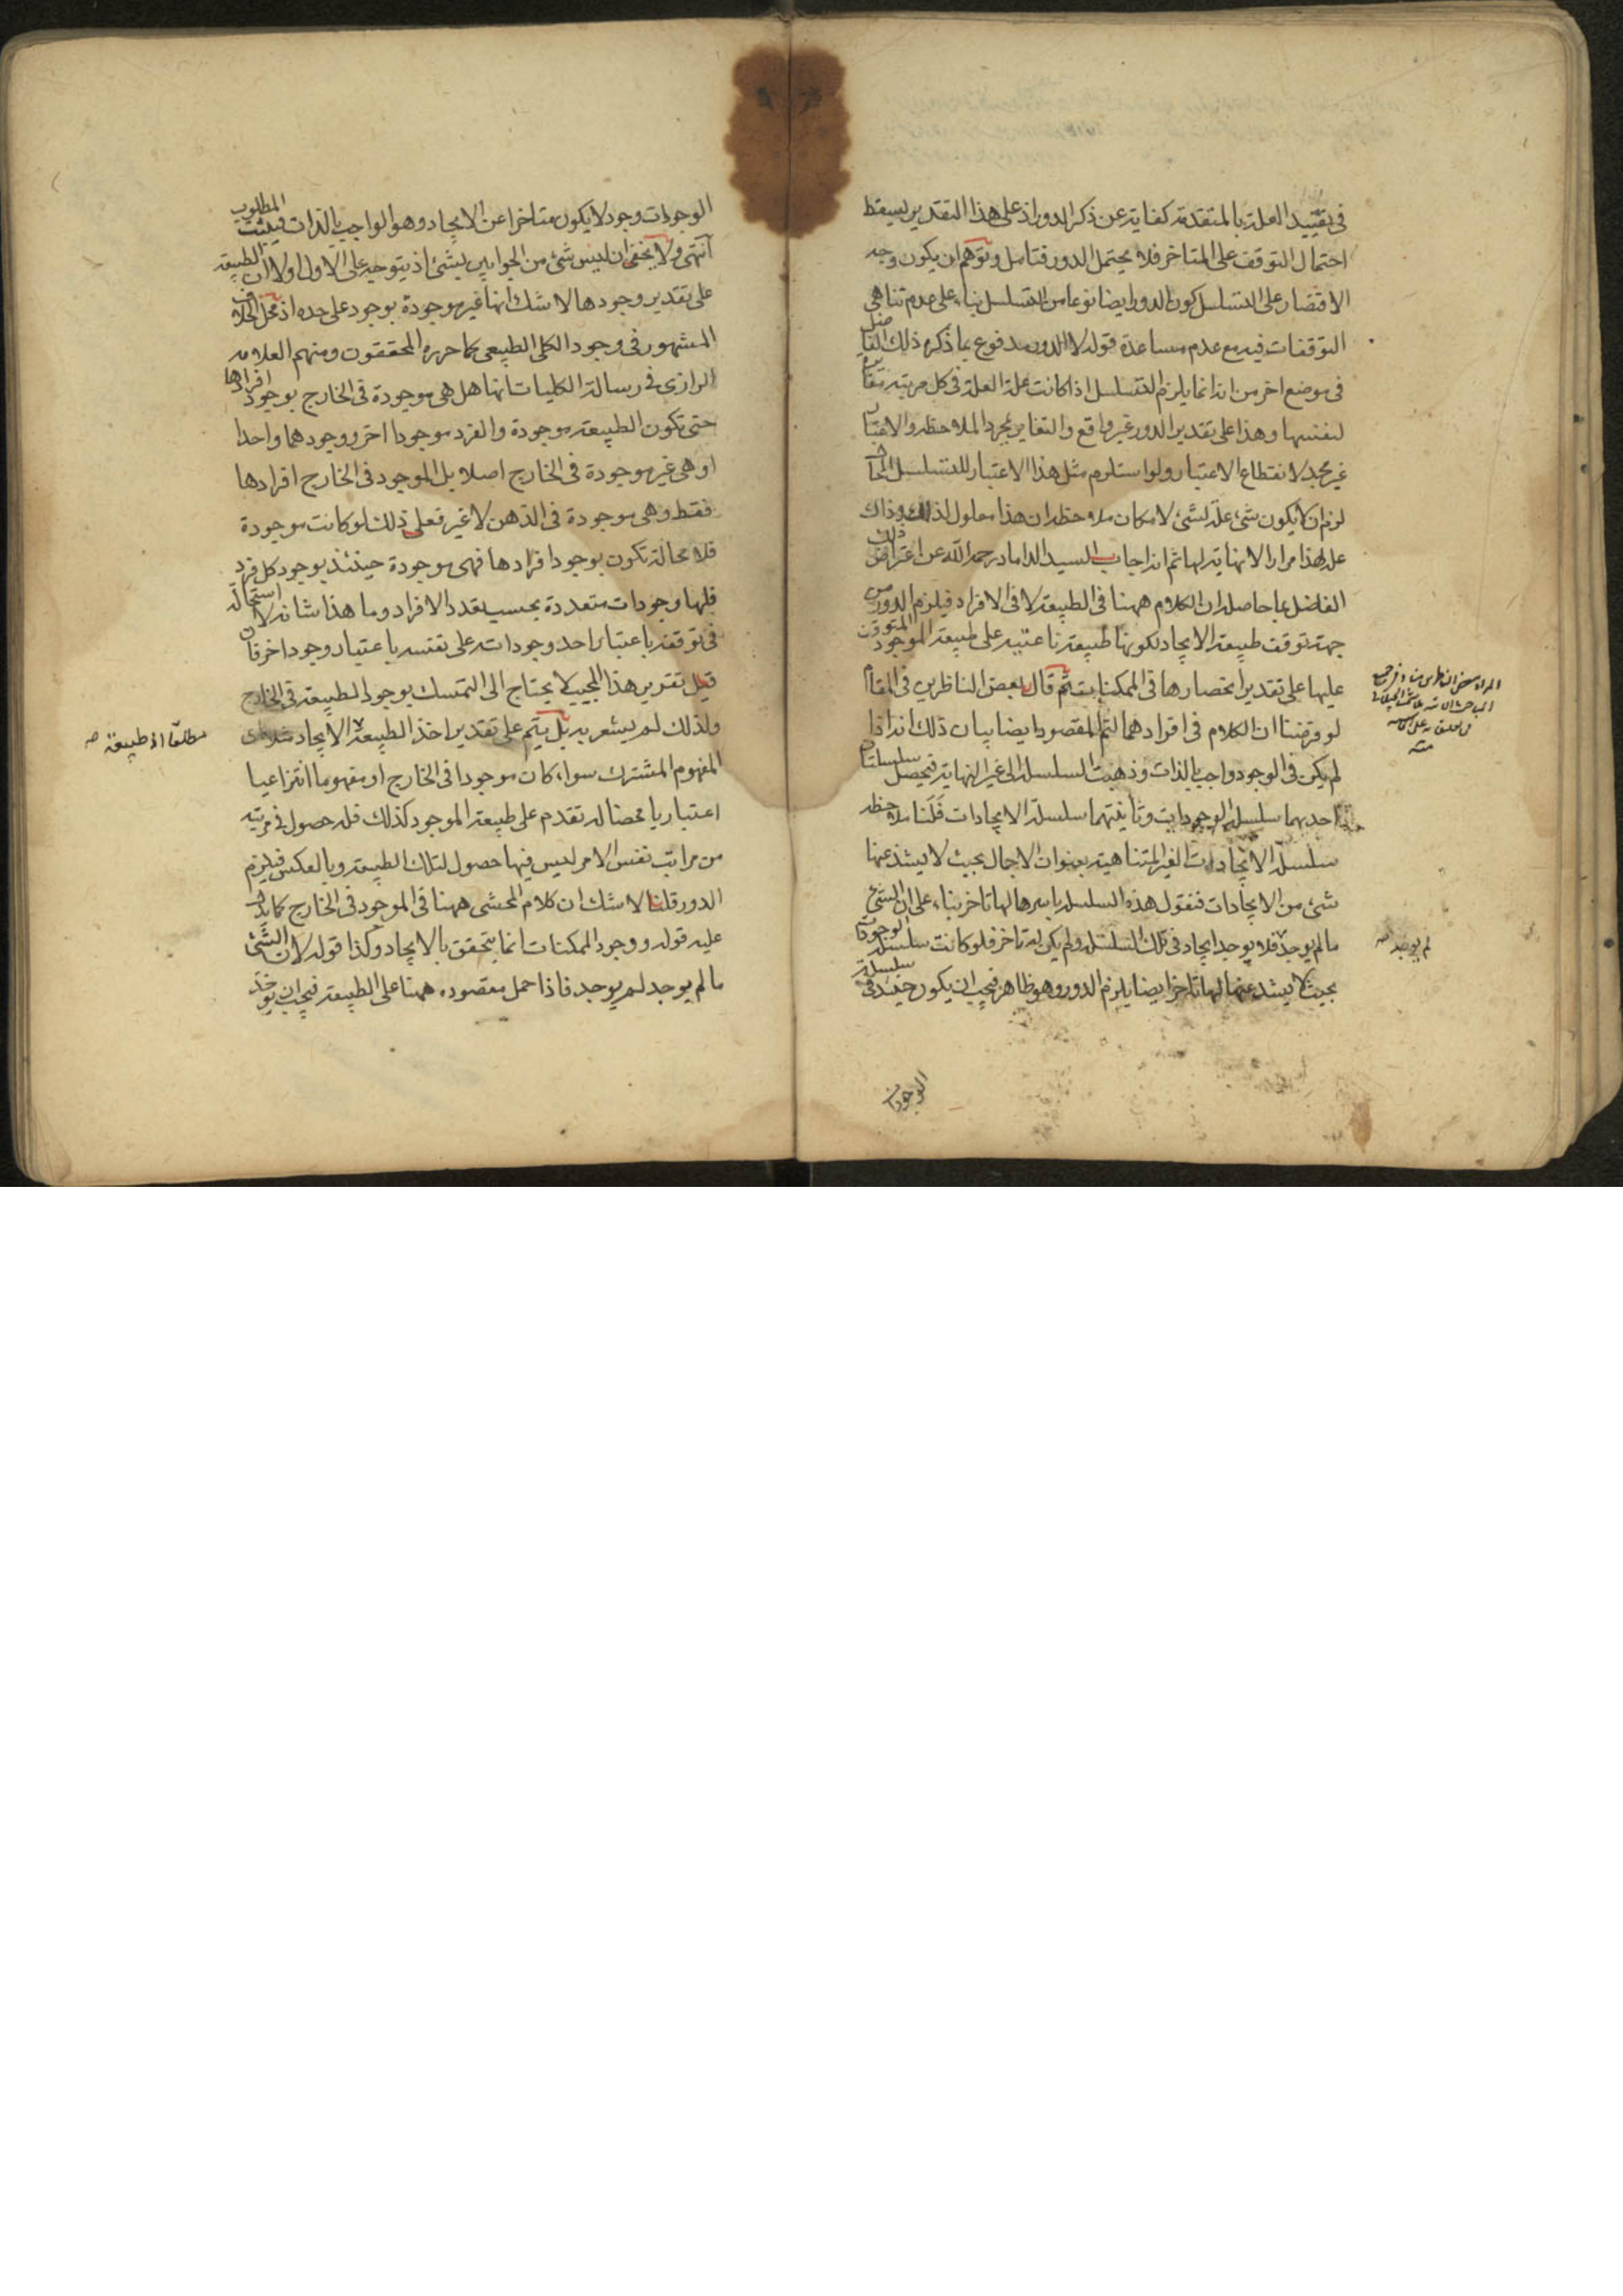 في تقييد العلة بالمتقدمة كفاية عن ذكر الدور اذ على هذا التقدير يسقط
احتمال التوقف على المتاخر فلا يحتمل الدور فتامل وتوهم ان يكون وجه
الاقتصار على التسلسل كون الدور ايضا نوعا من التسلسل بناء على عدم تناهي
التوقفات فيه مع عدم مساعدة قوله لا الدور مدفوع بما ذكره ذلك الفاضل
في موضع اخر من انه انما يلزم التسلسل اذا كانت علة العلة في كل مرتبة مغايرة
لنفسها وهذا على تقدير الدور غير واقع والتغاير بمجرد الملاحظة والاعتبار
غير مجد لانقطاع الاعتبار ولو استلزم مثل هذا الاعتبار للتسلسل المحال
لزم ان لا يكون شئ علة لشئ لامكان ملاحظة ان هذا معلول لذلك وذاك
علة لهذا مرارا لا نهاية لها ثم انه اجاب السيد الداماد رحمه الله عن اعتراض ذلك
الفاضل بما حاصله ان الكلام ههنا في الطبيعة لا في الافراد فيلزم الدور من
جهة توقف طبيعة الايجاد لكونها طبيعة ناعتية على طبيعة الموجود المتوقف
عليها على تقدير انحصارها في الممكنات ثم قال بعض الناظرين في المقام
لو فرضنا ان الكلام في افرادهما لتم المقصود ايضا بيان ذلك انه اذا
لم يكن في الوجود واجب بالذات وذهبت السلسلة الى غير النهاية فيحصل سلسلتان
احديهما سلسلة الوجودات وثانيتهما سلسلة الايجادات فلنا ملاحظة
سلسلة الايجادات الغير المتناهية بعنوان الاجمال بحيث لا يشذ عنها
شئ من الايجادات فنقول هذه السلسلة باسرها لها تاخر بناء على ان الشئ
ما لم يوجد فلا يوجد ايجاد في تلك السلسلة ولم يكن له تاخر فلو كانت سلسلة الوجودات
بحيث لا يشذ عنها لها تاخر ايضا يلزم الدور وهو ظاهر فيجب ان يكون حينئذ في سلسلة
الوجودات
لم يوجد صح
الوجودات وجود لا يكون متاخرا عن الايجاد وهو الواجب بالذات فيثبت المطلوب
انتهى ولا يخفى ان ليس شئ من الجوابين بشئ اذ يتوجه على الاول اولا ان الطبيعة
على تقدير وجودها لا شك انها غير موجودة بوجود على حده اذ محل الخلاف
المشهور في وجود الكلي الطبيعي كما حرره المحققون ومنهم العلامة
الرازي في رسالة الكليات انها هل هي موجودة في الخارج بوجود افرادها
حتى تكون الطبيعة موجودة والفرد موجودا اخر ووجودهما واحدا
او هي غير موجودة في الخارج اصلا بل الموجود في الخارج افرادها
فقط وهي موجودة في الذهن لا غير فعلى ذلك لو كانت موجودة
فلا محالة تكون بوجود افرادها فهى موجودة حينئذ بوجود كل فرد
فلها وجودات متعددة بحسب تعدد الافراد وما هذا شانه لا استحالة
في توقفه باعتبار احد وجوداته على نفسه باعتبار وجود اخر فان
قيل تقرير هذا المجيب لا يحتاج الى التمسك بوجود الطبيعة في الخارج
ولذلك لم يشعر به بل يتم على تقدير اخذ الطبيعة الايجاد
المفهوم المشترك سواء كان موجودا في الخارج او مفهوما انتزاعيا
اعتباريا محضا له تقدم على طبيعة الموجود كذلك فله حصول في مرتبة
من مراتب نفس الامر ليس فيها حصول لتلك الطبيعة وبالعكس فيلزم
الدور قلنا لا شك ان كلام المحشي ههنا في الموجود في الخارج كما يدل
عليه قوله ووجود الممكنات انما يتحقق بالايجاد وكذا قوله لان الشئ
ما لم يوجد لم يوجد فاذا حمل مقصوده ههنا على الطبيعة فيجب ان يوخذ
مطلقا اذ طبيعة صح